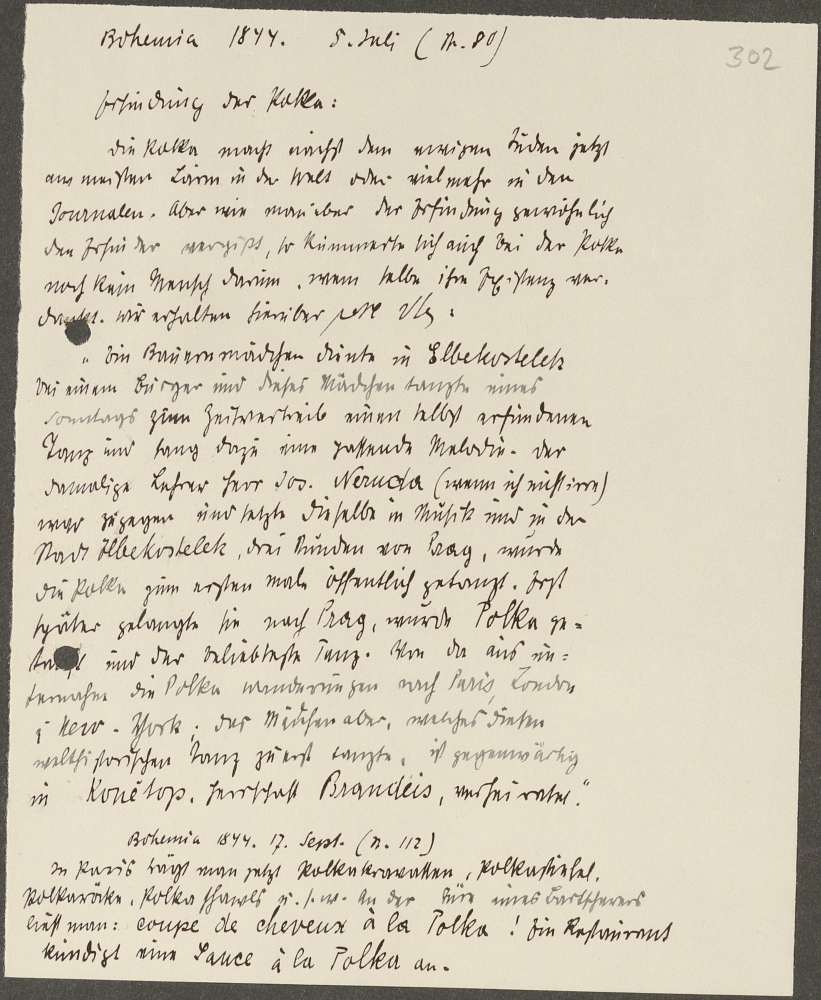 Bohemia 1844. 5. Juli (N. 80)
302
Erfindung der Polka:
Die Polka macht nächst dem ewigen Juden jetzt
am meisten Lärm in der Welt oder vielmehr in den
Journalen. Aber wie man über der Erfindung gewöhnlich
den Erfinder vergißt, so kümmerte sich auch bei der Polka
noch kein Mensch darum, wem selbe ihre Existenz ver-
dankt. Wir erhalten hierüber
„Ein Bauernmädchen diente in Elbekosteletz
bei einem Bürger und dieses Mädchen tanzte eines
Sonntags zum Zeitvertreib einen selbst erfundenen
Tanz und sang dazu eine passende Melodie. Der
damalige Lehrer Herr Jos. Neruda (wenn ich nicht irre)
war zugegen und setzte dieselbe in Musik und in der
Stadt Elbekostelek, drei Stunden von Prag, wurde
die Polka zum ersten male öffentlich getanzt. Erst
später gelangte sie nach Prag, wurde Polka ge-
tauft und der beliebteste Tanz. Von da aus un-
ternahm die Polka Wanderungen nach Paris, London
New-York; das Mädchen aber, welches diesen
welthistorischen Tanz zuerst tanzte, ist gegenwärtig
in Konětop, Herrschaft Brandeis, verheiratet."
Bohemia 1844. 17. Sept. (N. 112)
In Paris trägt man jetzt Polkakravatten, Polkastiefel,
Polkaröcke, Polkashawls u. s. w. An der Türe eines Bartscherers
liest man: coupe de cheveux à la Polka! Ein Restaurant
kündigt eine Sauce à la Polka an.